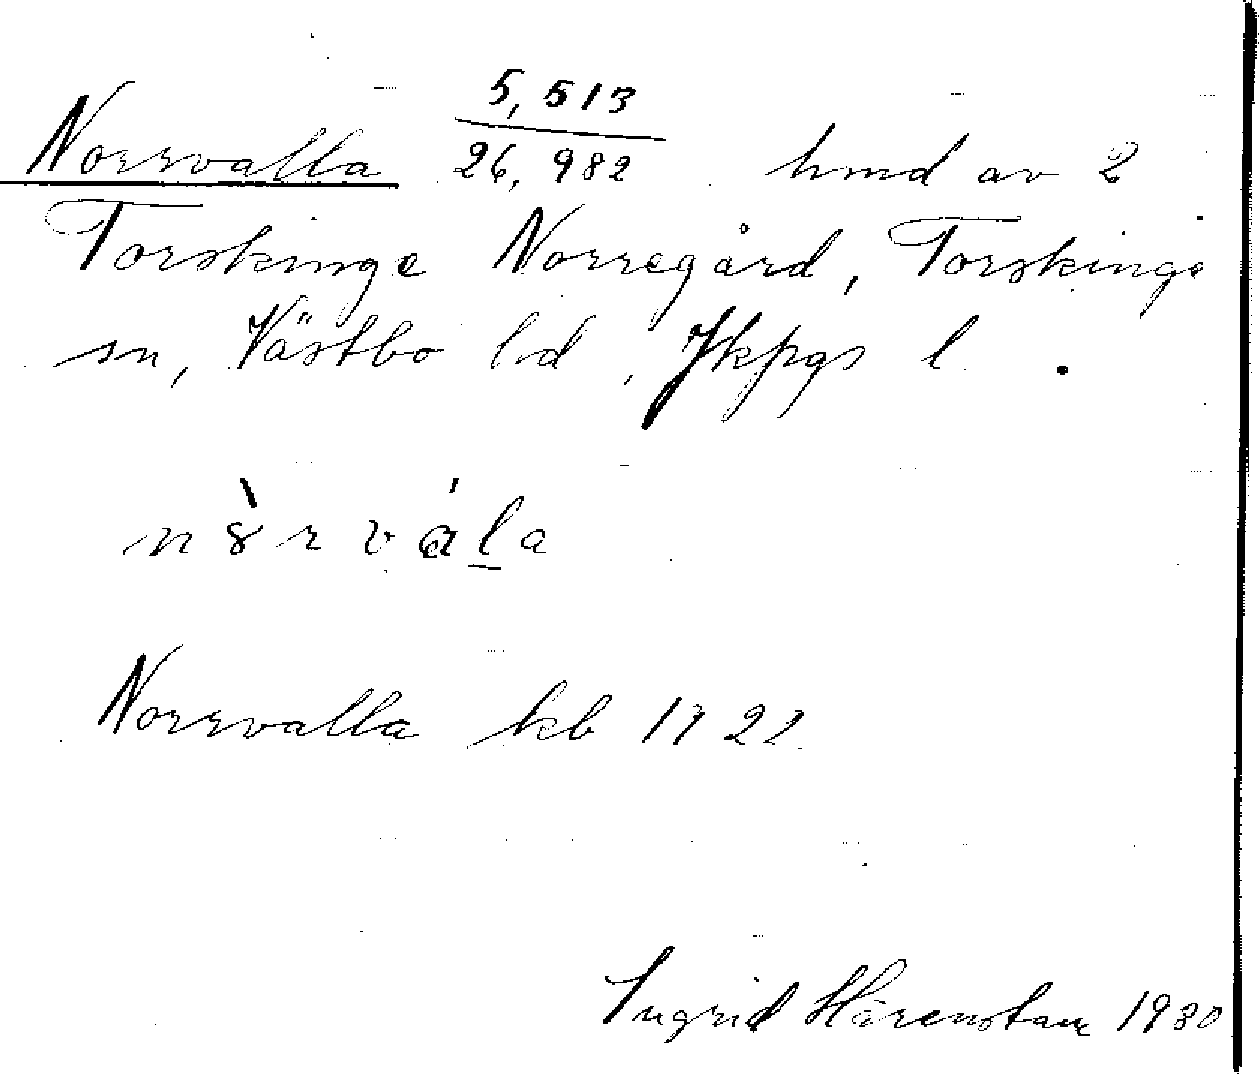 Norrvalla 5,513/26,982 hmd av 2
Torskinge Norregård, Torskinge
sn, Västbo hd, Jkpgs l.
n8̀rválа
Norrvalla kb 1722
Ingrid Härenstam 1930